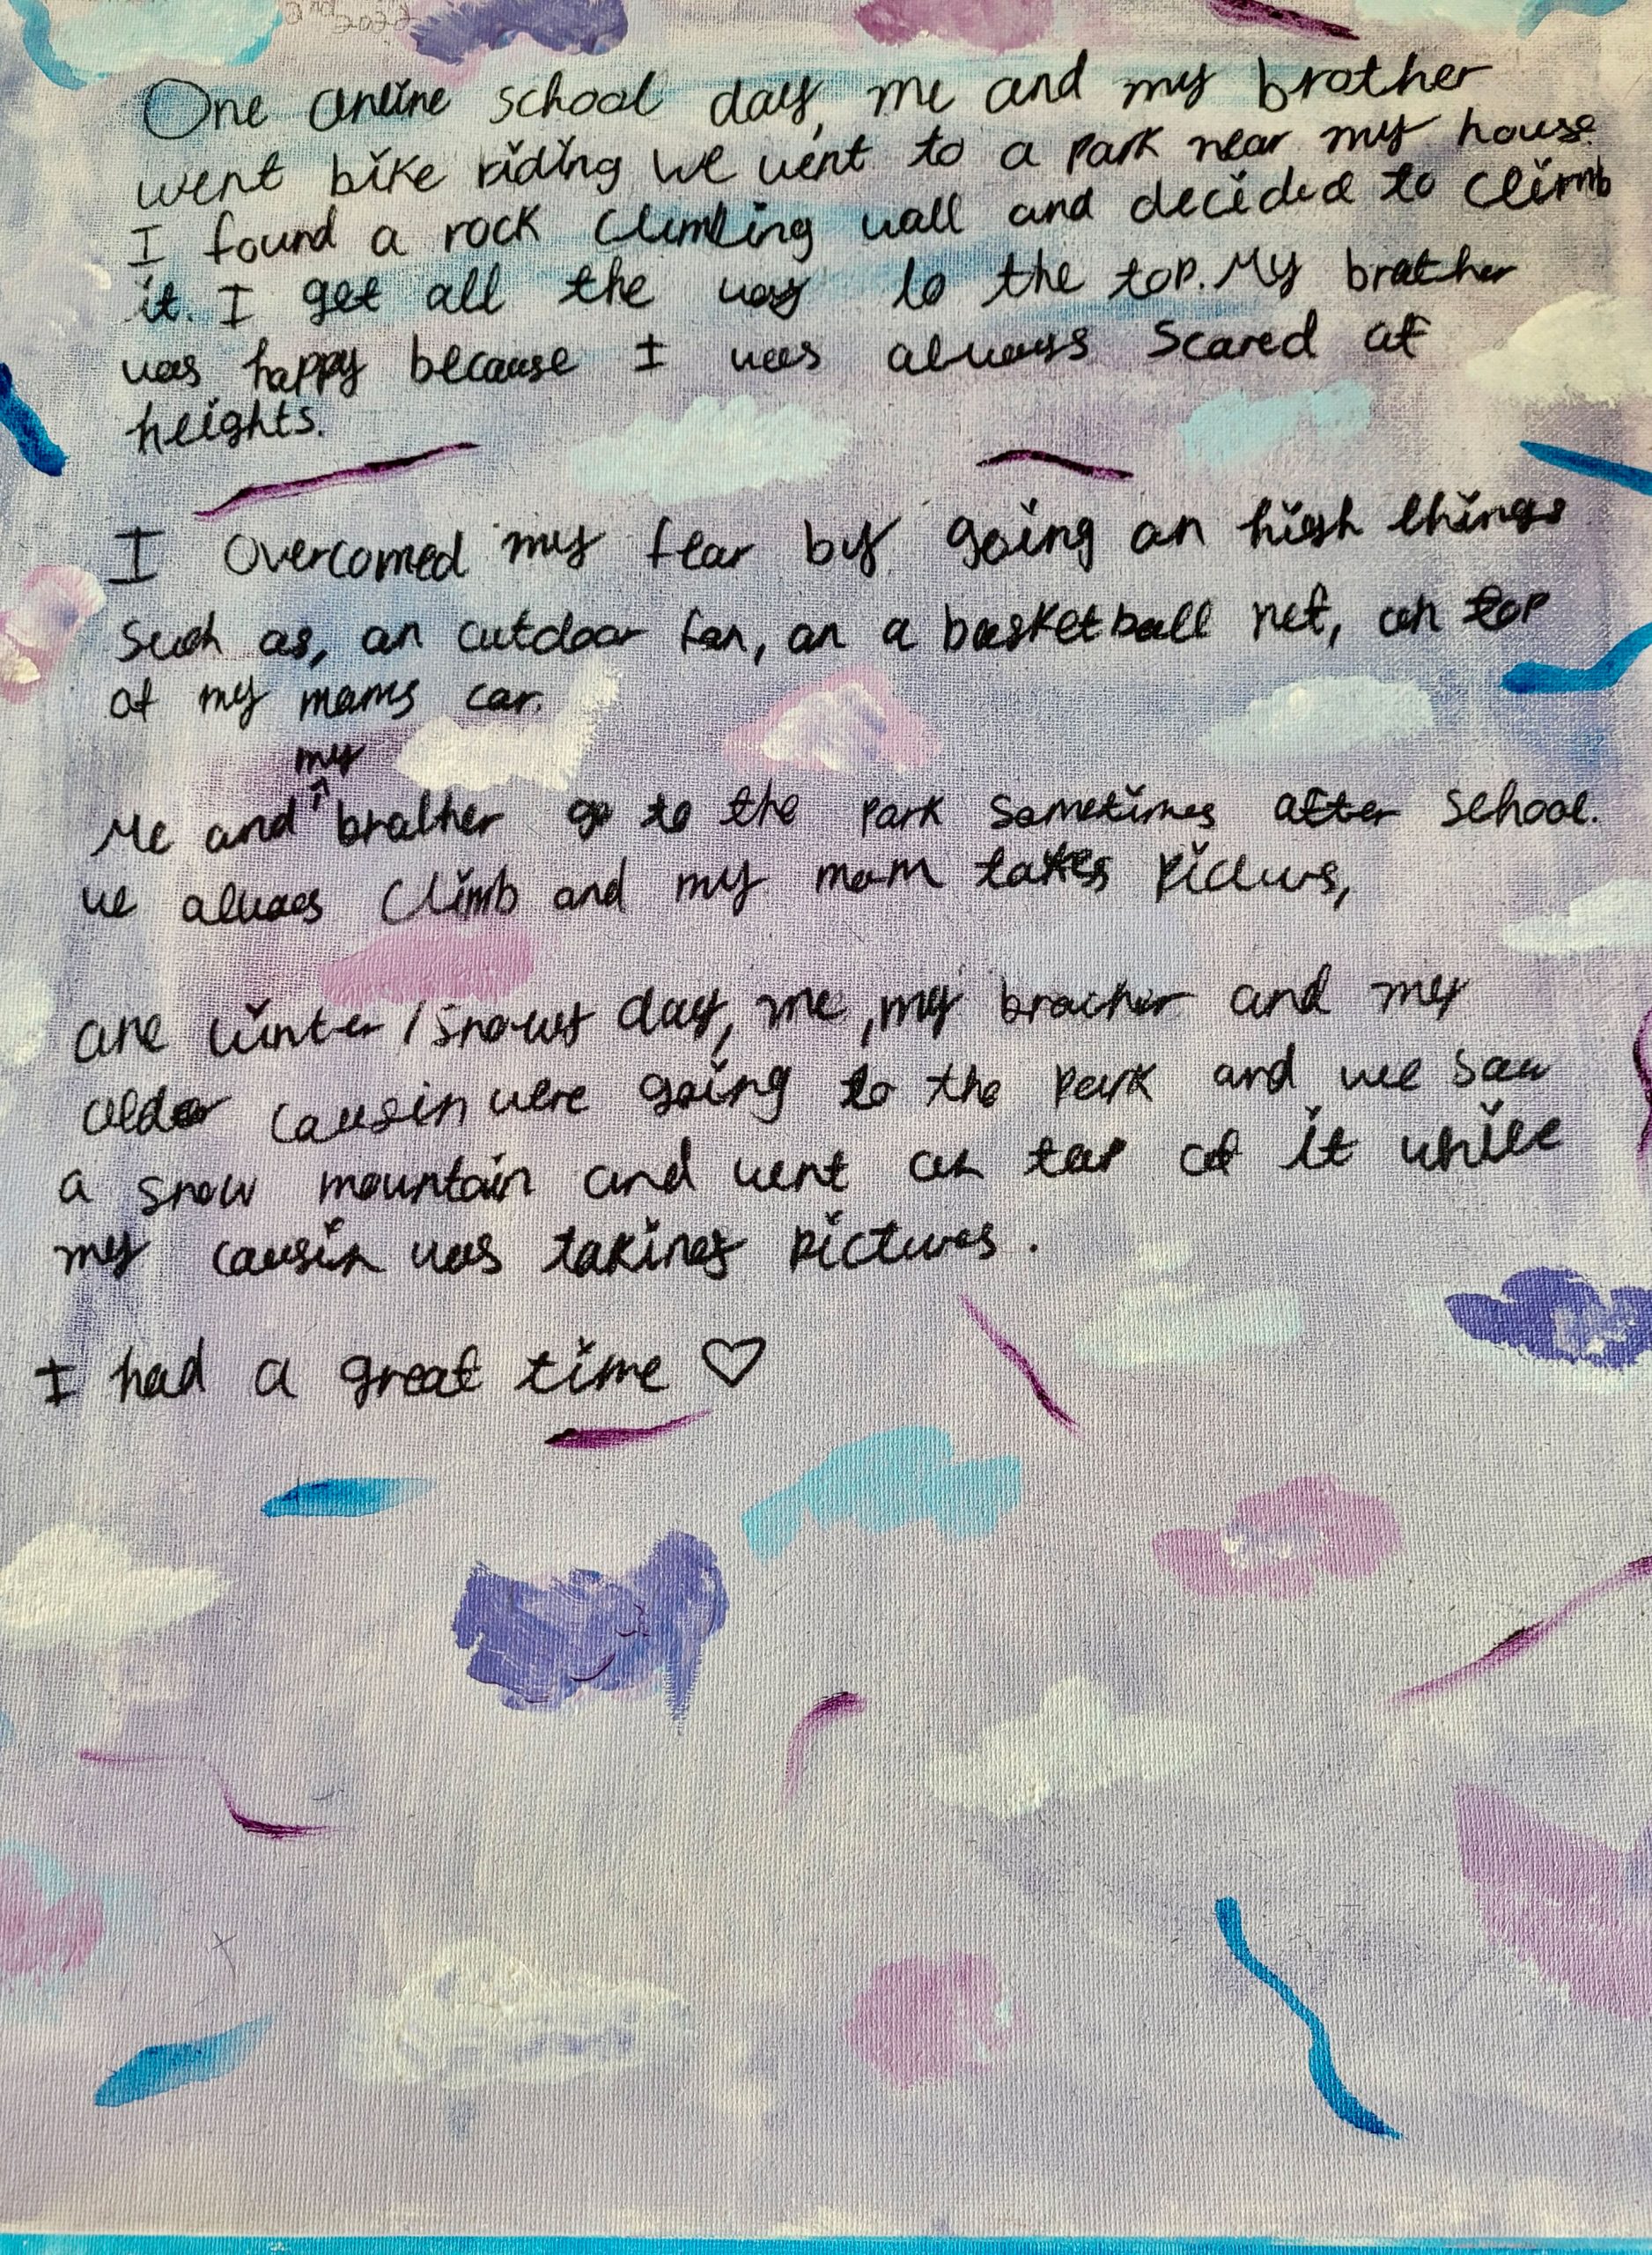 2nd
2022
One online school day, me and my brother
went bike riding we went to a park near my house.
I found a rock climbing wall and decided to climb
it. I get all the way to the top. My brother
was happy because I was always scared of
heights.
I overcomed my fear by going on high things
such as, an outdoor fan, on a basketball net, on top
of my moms car.
my
Me and ^ brother go to the park sometimes after school.
we always climb and my mom takes pictures,
one winter/snowy day, me, my brother and my
older cousin were going to the park and we saw
a snow mountain and went on top of it while
my cousin was taking pictures.
I had a great time ♡